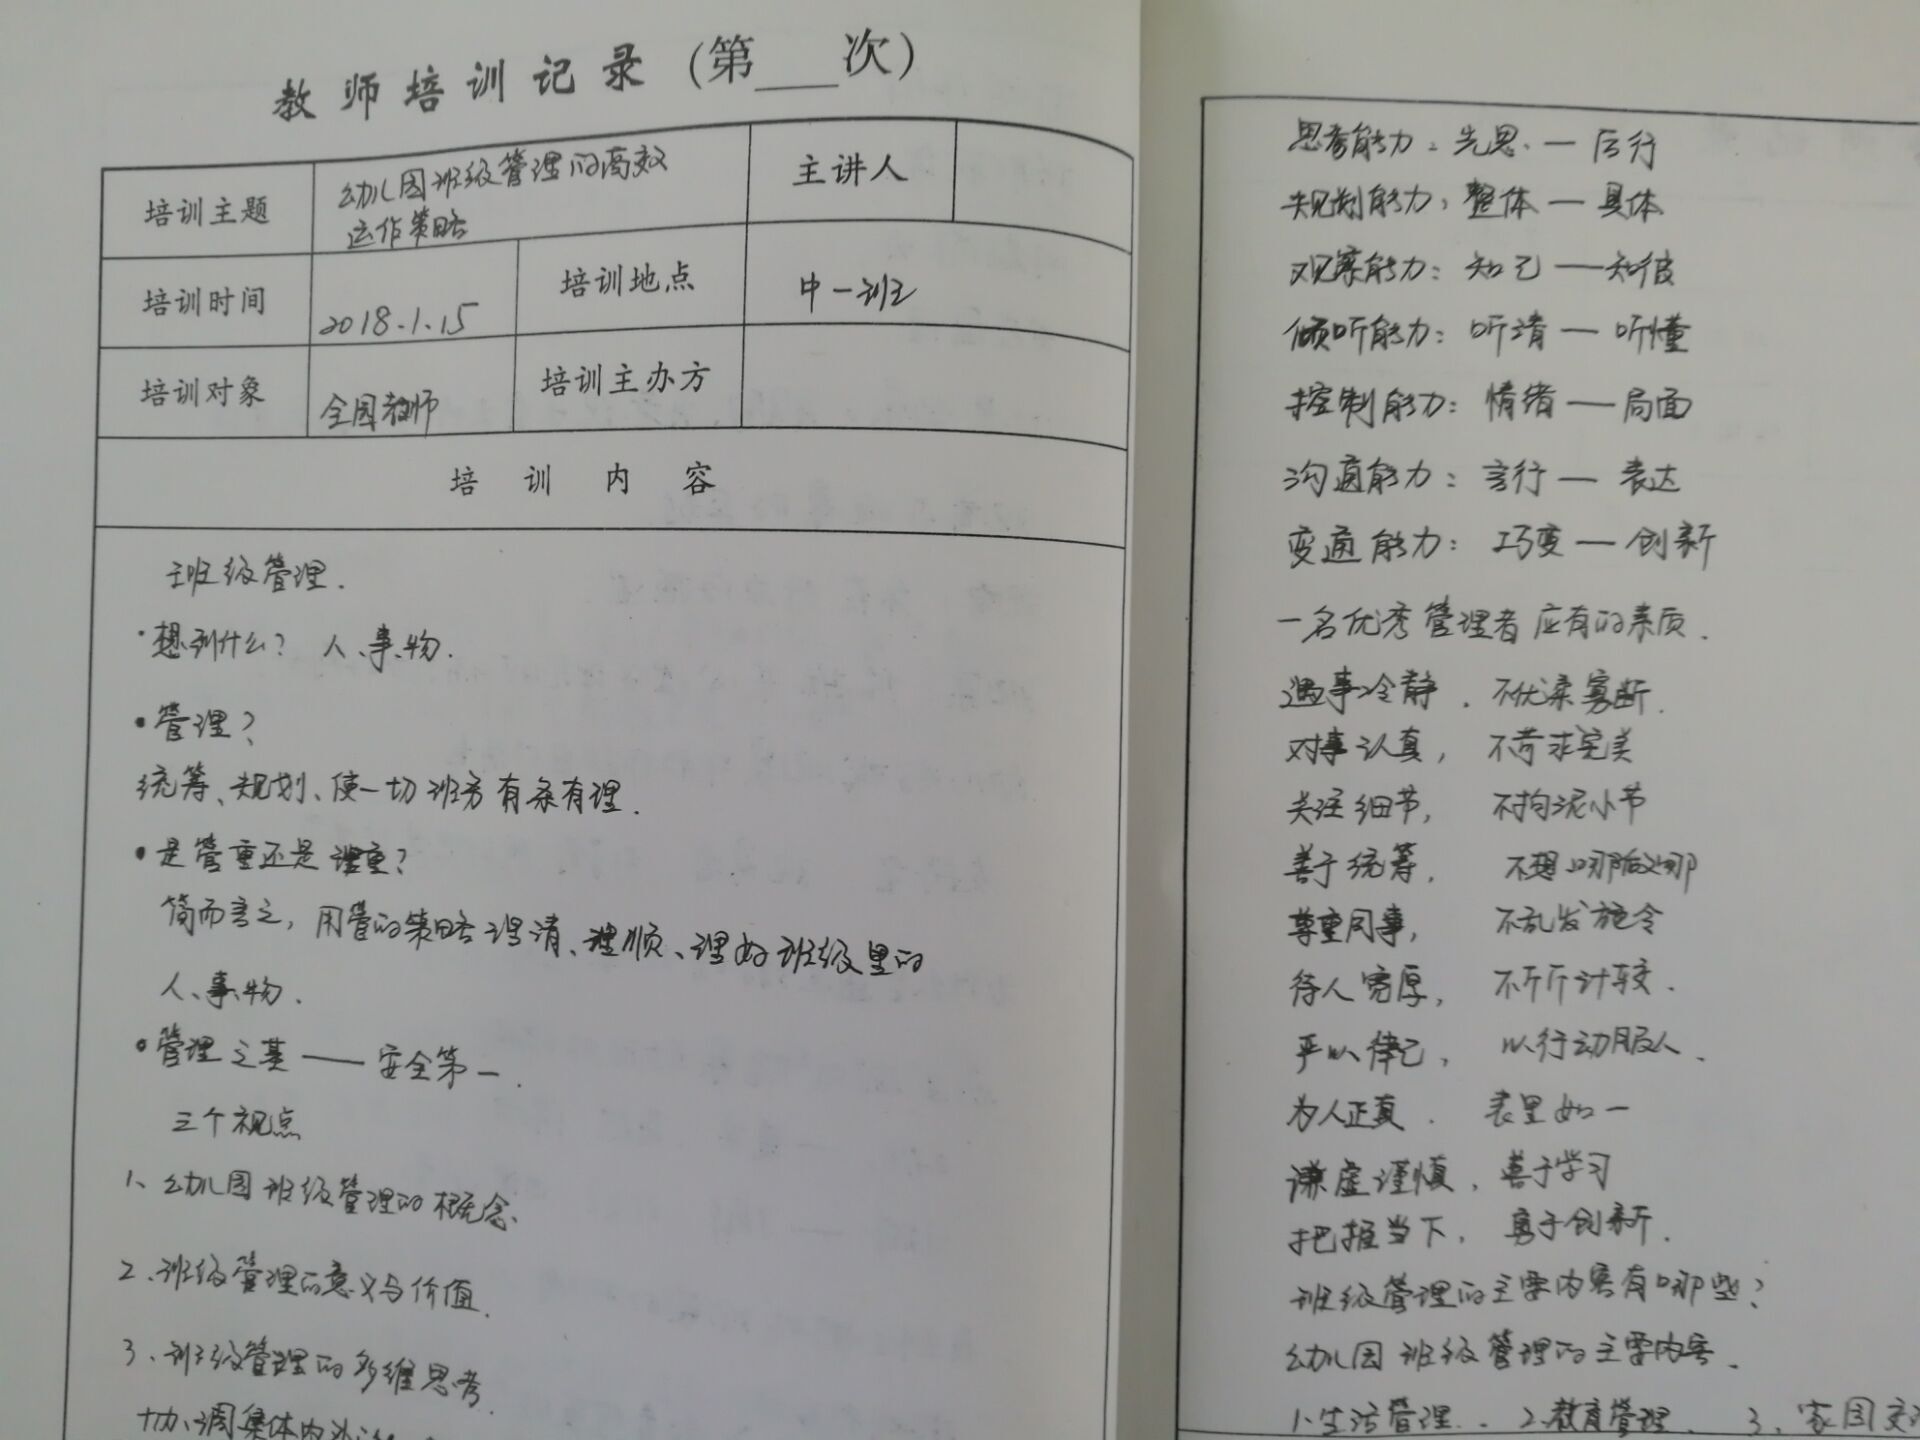 教师培训记录(第___次)
培训主题
幼儿园班级管理的高效
运作策略
主讲人
培训时间
2018.1.15
培训地点
中一班
培训对象
全园教师
培训主办方
培训内容
班级管理.
·想到什么? 人、事、物.
·管理?
统筹、规划、使一切班务有条有理.
·是管重还是理重?
简而言之,用管的策略理清、理顺、理好班级里的
人、事、物.
·管理之基——安全第一.
三个视点
1、幼儿园班级管理的概念
2、班级管理的意义与价值.
3、班级管理的多维思考.
协调集体内外
思考能力:先思—后行
规划能力:整体—具体
观察能力:知己—知彼
倾听能力:听清—听懂
控制能力:情绪—局面
沟通能力:言行—表达
变通能力:巧变—创新
一名优秀管理者应有的素质.
遇事冷静. 不优柔寡断.
对事认真, 不苛求完美
关注细节, 不拘泥小节
善于统筹, 不想哪做哪
尊重同事, 不乱发施令
待人宽厚, 不斤斤计较.
严以律己, 以行动服人.
为人正直. 表里如一
谦虚谨慎, 善于学习
把握当下, 勇于创新.
班级管理的主要内容有哪些?
幼儿园班级管理的主要内容.
1、生活管理.. 2、教育管理. 3、家园交